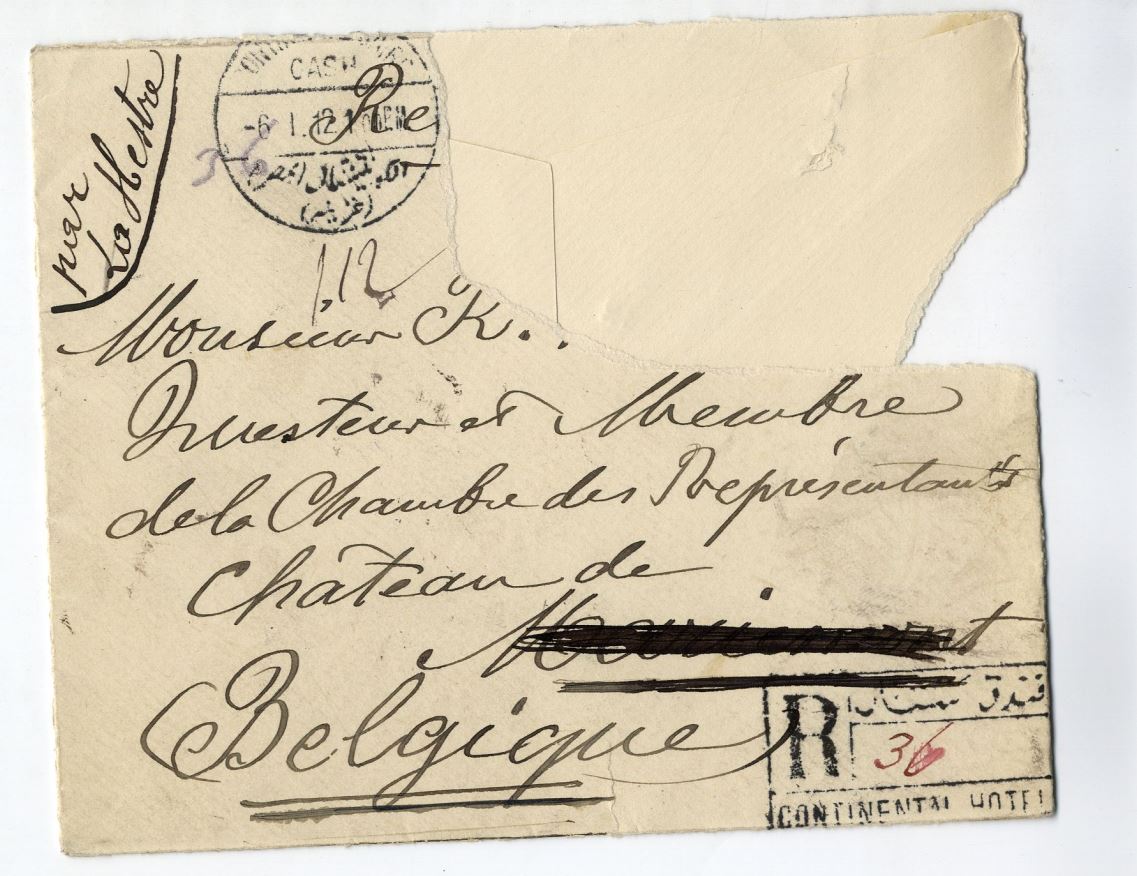 par
La Hestre
CASH
Re
-6 I. 12. 1
36
112
Monsieur K..
Questeur et Membre
de la Chambre des Représentants
Château de
Belgique
R
فندق
36
CONTINENTAL HOTEL